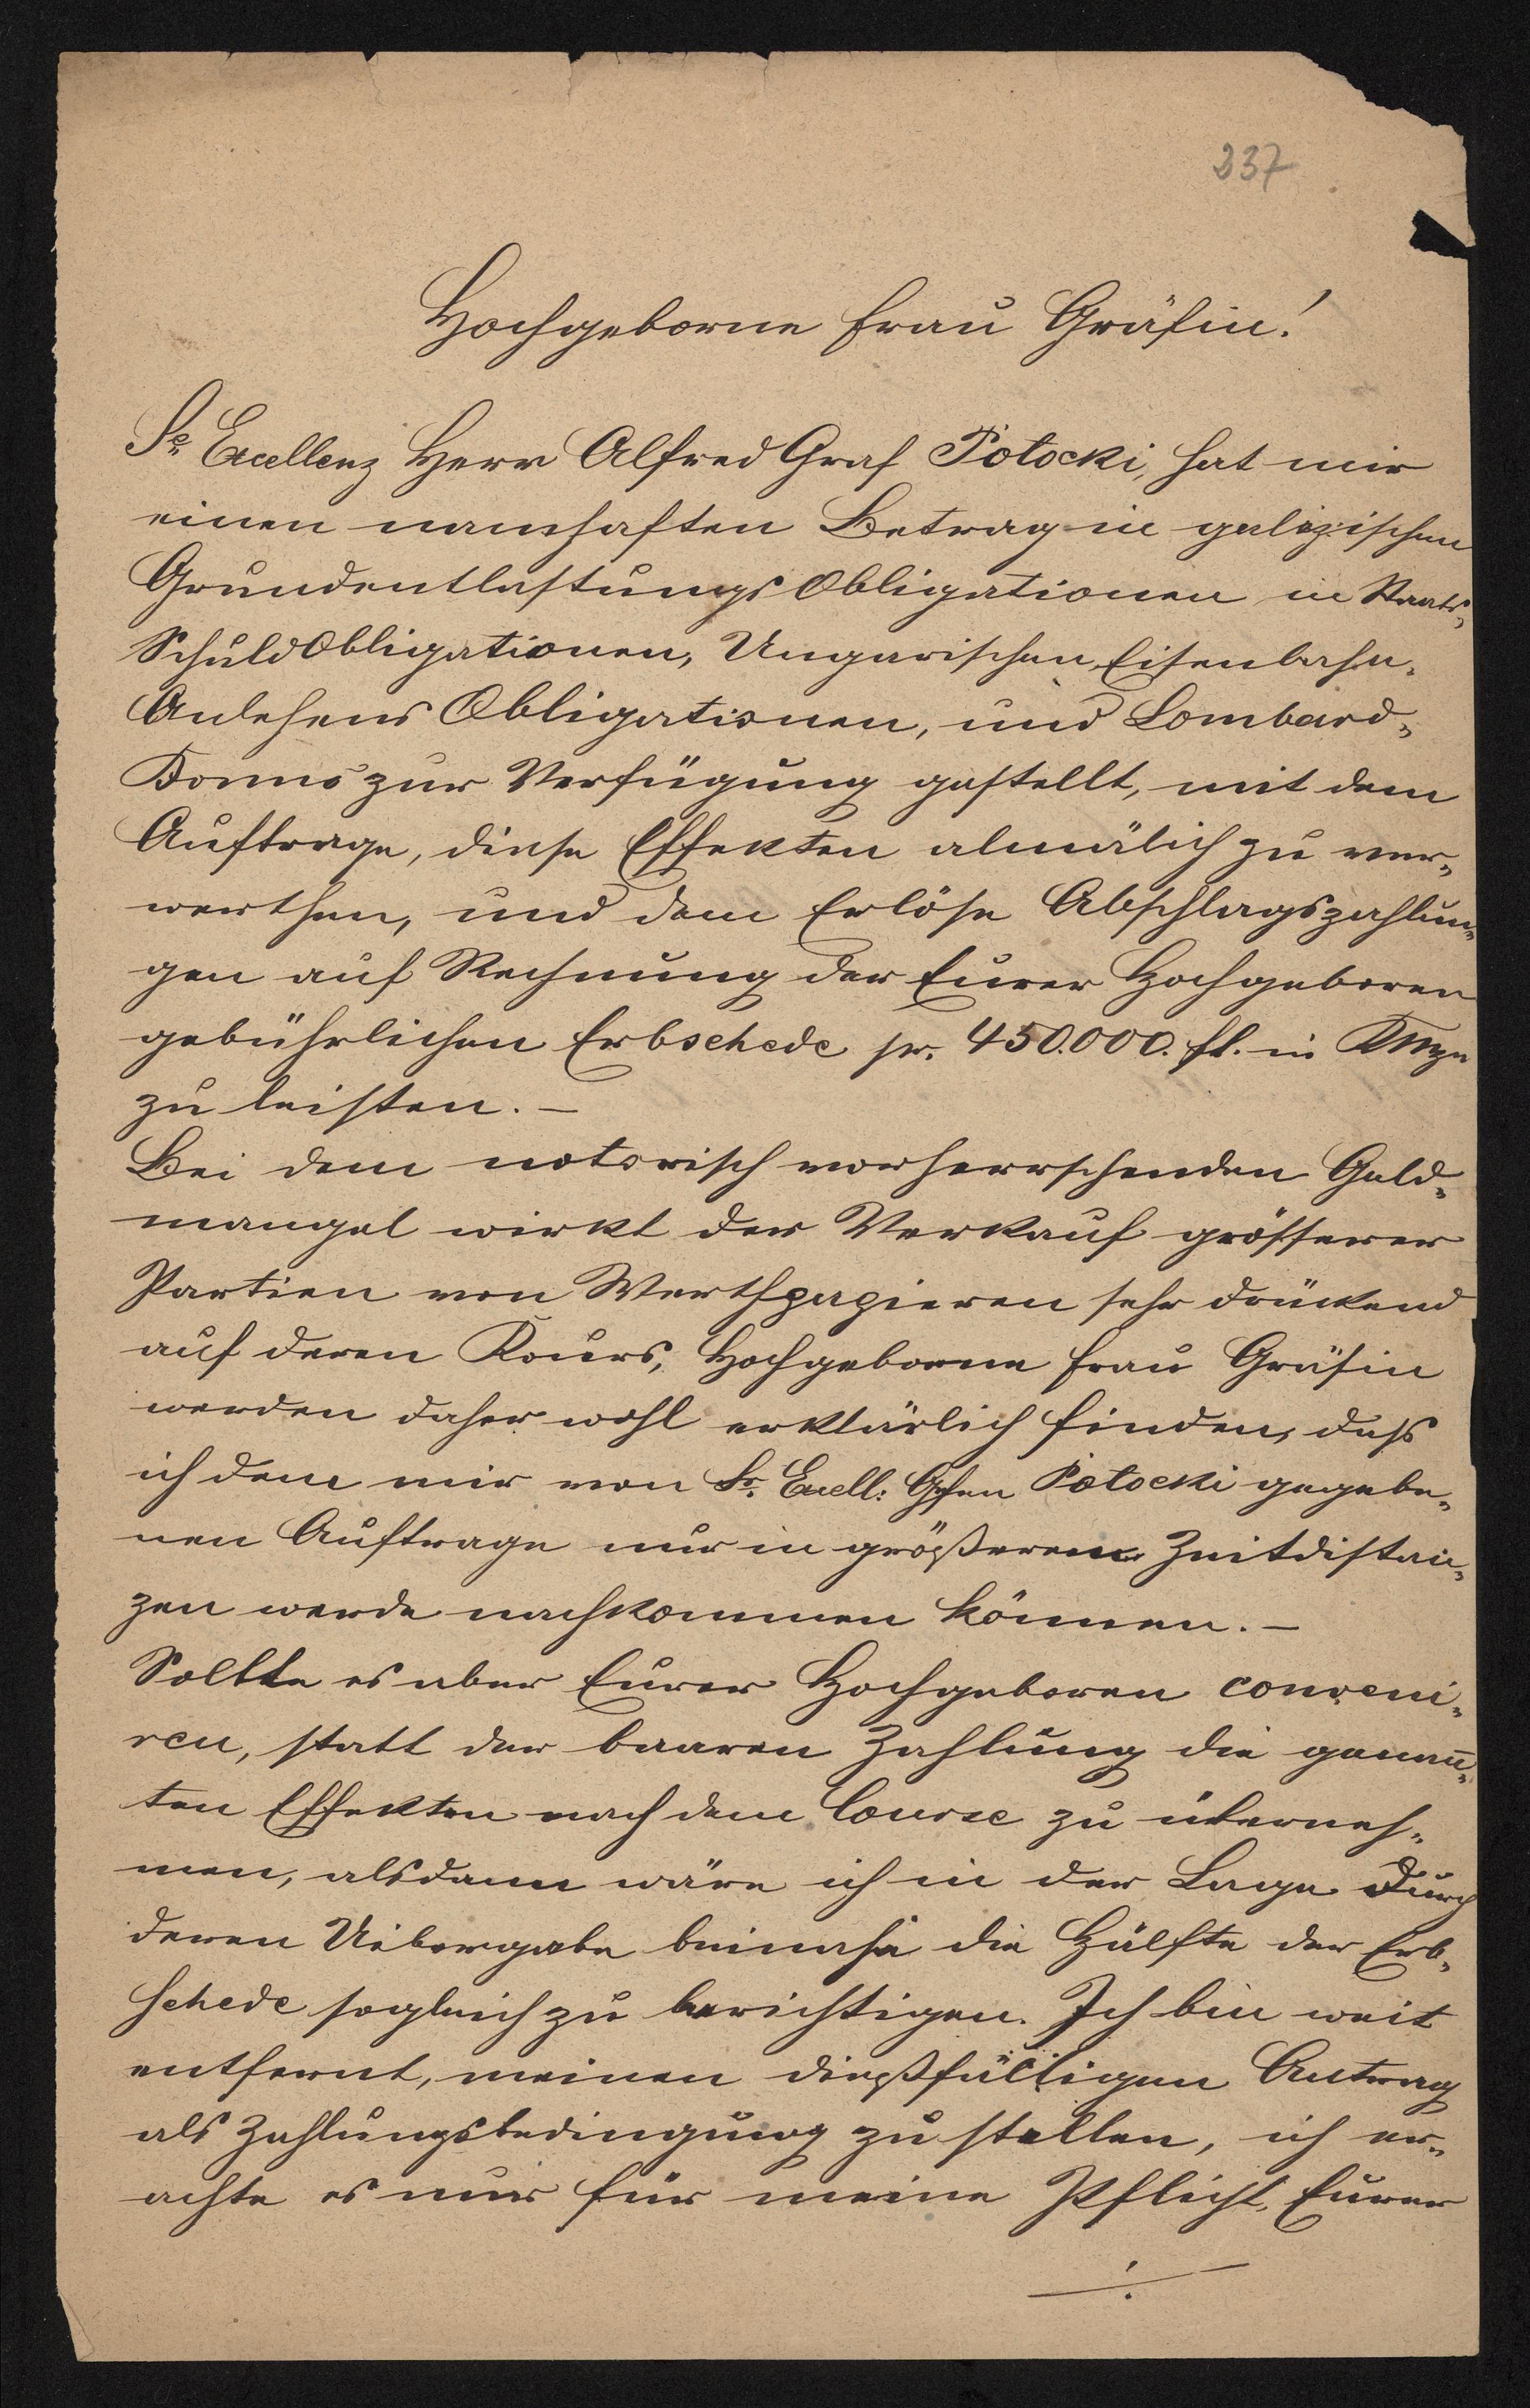 237
Hochgeborne Frau Gräfin!
Se Excellenz Herr Alfred Graf Potocki, hat mir
einen namhaften Betrag in galizischen
Grundentlastungs Obligationen in Staats„
Schuld Obligationen, Ungarischen Eisenbahn„
Anlehens Obligationen, und Lombard„
Bonns zur Verfügung gestellt, mit dem
Auftrage, diese Effekten almälich zu ver„
werthen, und dem Erlöse Abschlagszahlun„
gen auf Rechnung der Eurer Hochgeboren
gebührlichen Erbschede pr. 450.000. fl. in KMze
zu leisten. —
Bei dem notorisch vorherrschenden Geld„
mangel wirkt der Verkauf grösserer
Partien von Werthpapieren sehr drückend
auf deren Kours, Hochgeborne Frau Gräfin
werden daher wohl erklärlich finden, daß
ich dem mir von Sr. Excell: Gfen Potocki gegebe„
nen Auftrage nur in größeren Zeitdistan„
zen werde nachkommen können. —
Sollte es aber Eurer Hochgeboren conveni„
ren, statt der baaren Zahlung die genan̄„
ten Effekten nach dem Course zu überneh„
men, alsdann wäre ich in der Lage durch
deren Uibergabe beinahe die Hälfte der Erb„
schede sogleich zu berichtigen. Ich bin weit
entfernt, meinen dießfälligen Antrag
als Zahlungsbedingung zu stellen, ich er„
achte es nur für meine Pflicht, Eurer
./.